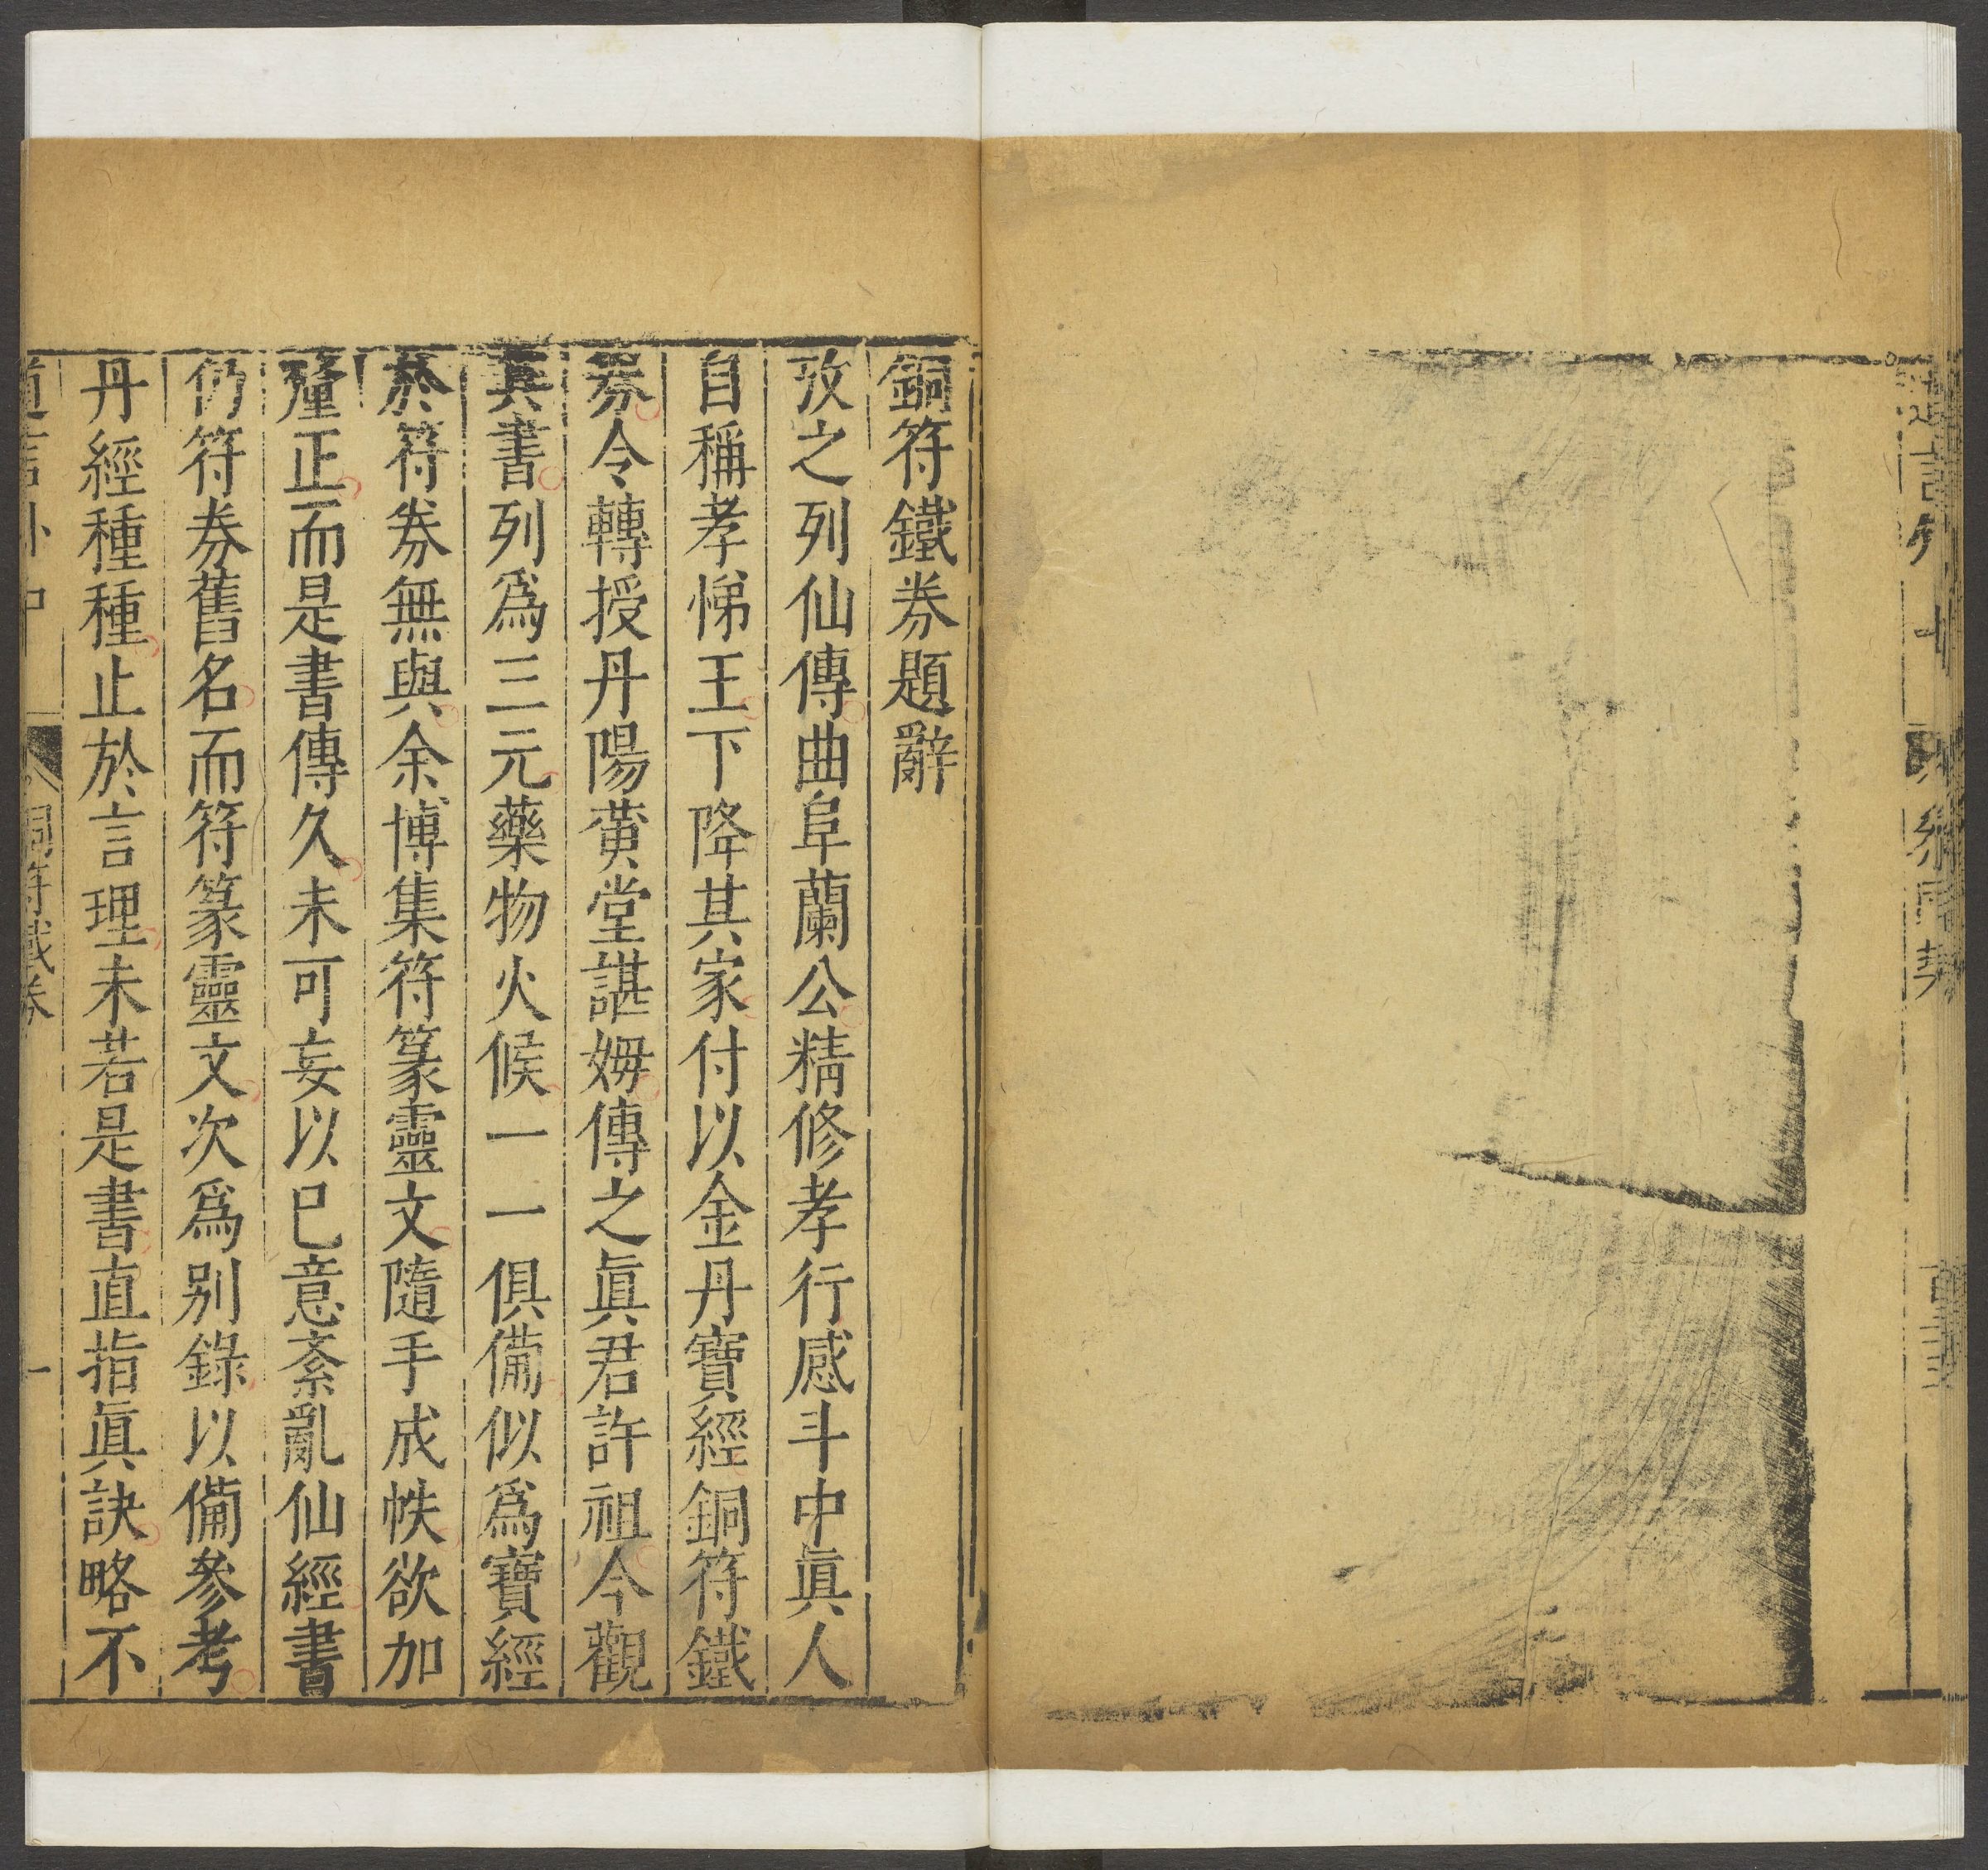 銅符鐵券題辭
攷之列仙傳曲阜蘭公精修孝行感斗中眞人
自稱孝悌王下降其家付以金丹寶經銅符鐵
券令轉授丹陽黄堂諶姆傳之眞君許祖今觀
其書列爲三元藥物火候一一俱備似爲寶經
於符券無與余博集符篆靈文隨手成帙欲加
釐正而是書傳久未可妄以已意紊亂仙經書
仍符券舊名而符篆靈文次爲别錄以備參考
丹經種種止於言理未若是書直指眞訣略不
道言外中
銅符鐵券
一